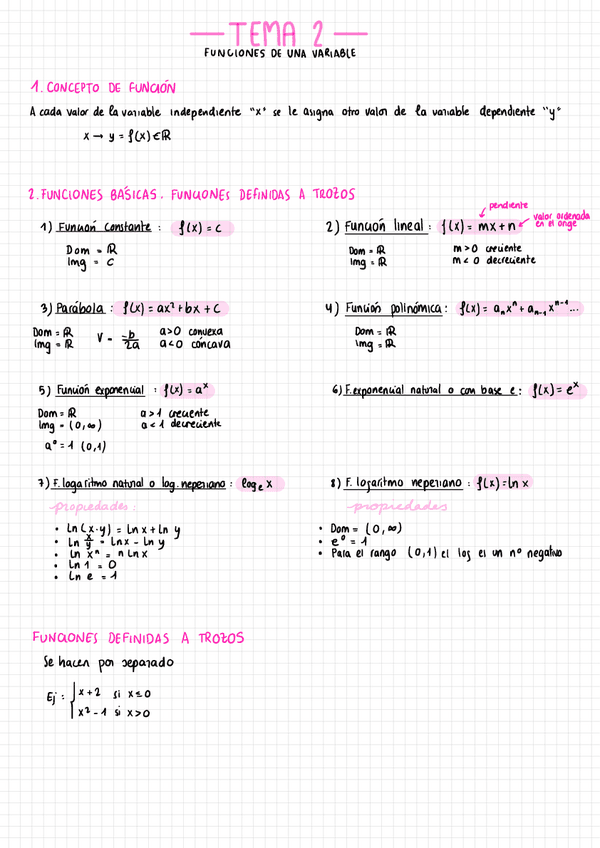 TEMA 2
FUNCIONES DE UNA VARIABLE
1. CONCEPTO DE FUNCIÓN
A cada valor de la variable independiente "x" se le asigna otro valor de la variable dependiente "y"
x → y = f(x) ∈ ℝ
2. FUNCIONES BÁSICAS. FUNCIONES DEFINIDAS A TROZOS
1) Función constante : f(x) = c
Dom = ℝ
Img = c
pendiente
2) Función lineal : f(x) = mx + n
valor ordenada
en el origen
Dom = ℝ
Img = ℝ
m > 0 creciente
m < 0 decreciente
3) Parábola : f(x) = ax² + bx + c
Dom = ℝ
Img = ℝ
V = -b/2a
a>0 convexa
a<0 cóncava
4) Función polinómica : f(x) = aₙxⁿ + aₙ₋₁xⁿ⁻¹...
Dom = ℝ
Img = ℝ
5) Función exponencial : f(x) = aˣ
Dom = ℝ
Img = (0,∞)
a⁰ = 1 (0,1)
a > 1 creciente
a < 1 decreciente
6) F. exponencial natural o con base e : f(x) = eˣ
7) F. logaritmo natural o log. neperiano : logₑ x
propiedades :
• Ln (x·y) = Ln x + Ln y
• Ln x/y = Ln x - Ln y
• Ln xⁿ = n Ln x
• Ln 1 = 0
• Ln e = 1
8) F. logaritmo neperiano : f(x) = ln x
propiedades
• Dom = (0,∞)
• e⁰ = 1
• Para el rango (0,1) el log es un nº negativo
FUNCIONES DEFINIDAS A TROZOS
Se hacen por separado
Ej : { x + 2 si x ≤ 0
x² - 1 si x > 0